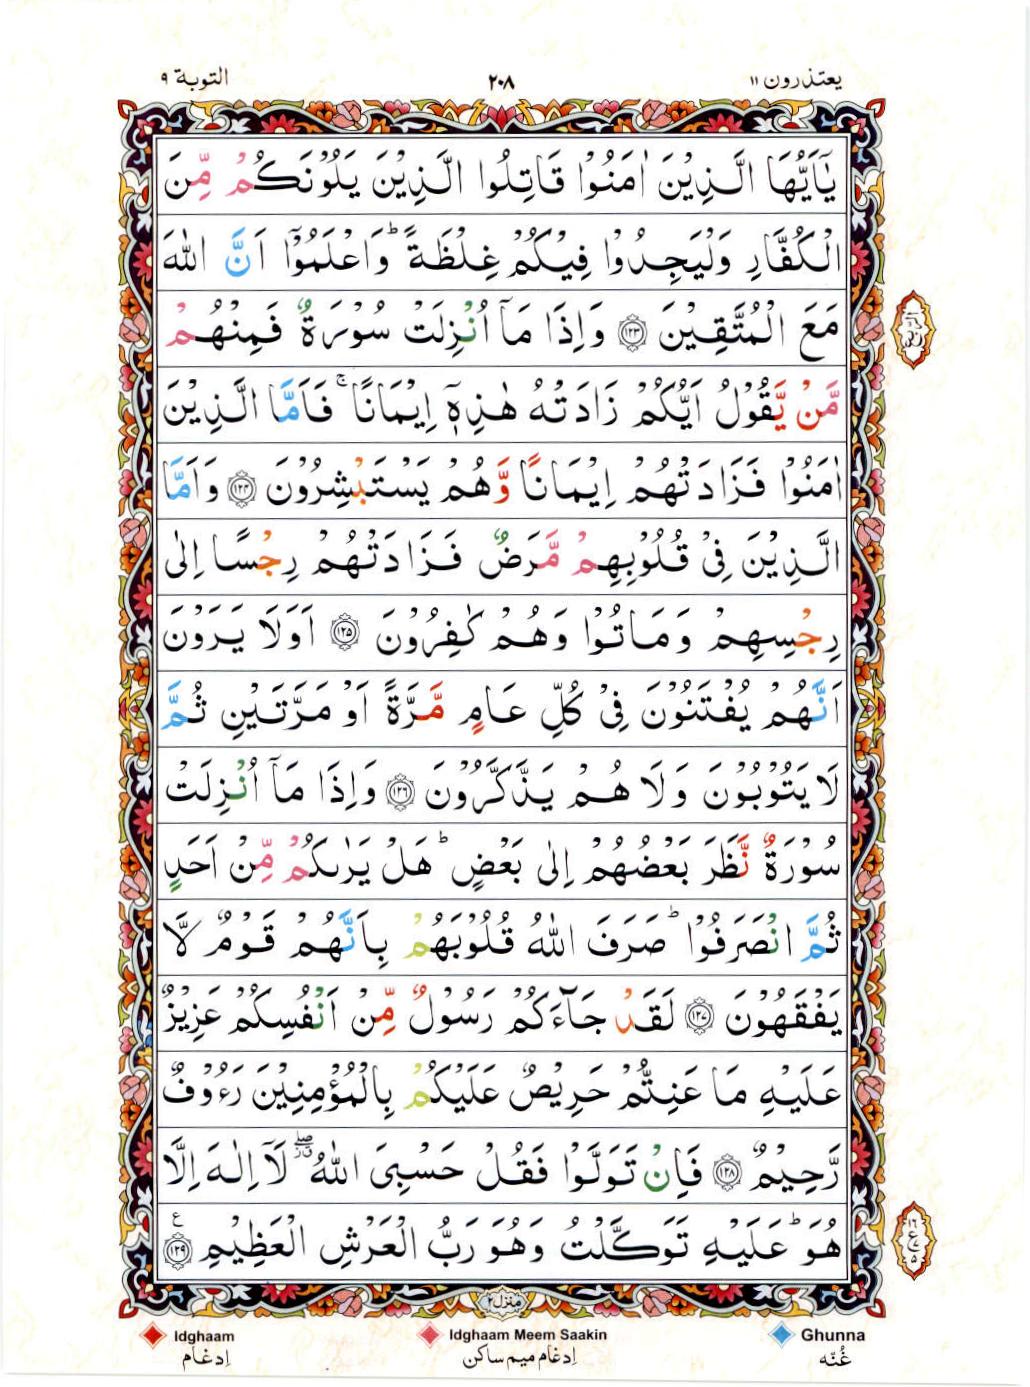 التوبة ٩
٢٠٨
يعتذرون ١١
يٰۤاَيُّهَا الَّذِيْنَ اٰمَنُوْا قَاتِلُوا الَّذِيْنَ يَلُوْنَكُمْ مِّنَ
الْكُفَّارِ وَلْيَجِدُوْا فِيْكُمْ غِلْظَةً ؕ وَاعْلَمُوْۤا اَنَّ اللّٰهَ
مَعَ الْمُتَّقِيْنَ ﴿١٢٣﴾ وَاِذَا مَاۤ اُنْزِلَتْ سُوْرَةٌ فَمِنْهُمْ
مَّنْ يَّقُوْلُ اَيُّكُمْ زَادَتْهُ هٰذِهٖۤ اِيْمَانًا ۚ فَاَمَّا الَّذِيْنَ
اٰمَنُوْا فَزَادَتْهُمْ اِيْمَانًا وَّهُمْ يَسْتَبْشِرُوْنَ ﴿١٢٤﴾ وَاَمَّا
الَّذِيْنَ فِيْ قُلُوْبِهِمْ مَّرَضٌ فَزَادَتْهُمْ رِجْسًا اِلٰى
رِجْسِهِمْ وَمَاتُوْا وَهُمْ كٰفِرُوْنَ ﴿١٢٥﴾ اَوَلَا يَرَوْنَ
اَنَّهُمْ يُفْتَنُوْنَ فِيْ كُلِّ عَامٍ مَّرَّةً اَوْ مَرَّتَيْنِ ثُمَّ
لَا يَتُوْبُوْنَ وَلَا هُمْ يَذَّكَّرُوْنَ ﴿١٢٦﴾ وَاِذَا مَاۤ اُنْزِلَتْ
سُوْرَةٌ نَّظَرَ بَعْضُهُمْ اِلٰى بَعْضٍ ؕ هَلْ يَرٰىكُمْ مِّنْ اَحَدٍ
ثُمَّ انْصَرَفُوْا ؕ صَرَفَ اللّٰهُ قُلُوْبَهُمْ بِاَنَّهُمْ قَوْمٌ لَّا
يَفْقَهُوْنَ ﴿١٢٧﴾ لَقَدْ جَآءَكُمْ رَسُوْلٌ مِّنْ اَنْفُسِكُمْ عَزِيْزٌ
عَلَيْهِ مَا عَنِتُّمْ حَرِيْصٌ عَلَيْكُمْ بِالْمُؤْمِنِيْنَ رَءُوْفٌ
رَّحِيْمٌ ﴿١٢٨﴾ فَاِنْ تَوَلَّوْا فَقُلْ حَسْبِيَ اللّٰهُ ۖ لَاۤ اِلٰهَ اِلَّا
هُوَ ؕ عَلَيْهِ تَوَكَّلْتُ وَهُوَ رَبُّ الْعَرْشِ الْعَظِيْمِ ﴿١٢٩﴾ ع
الربع
١٦
ع
٥
منزل ٢
Idghaam
اِدغام
Idghaam Meem Saakin
اِدغام ميم ساكن
Ghunna
غُنّه